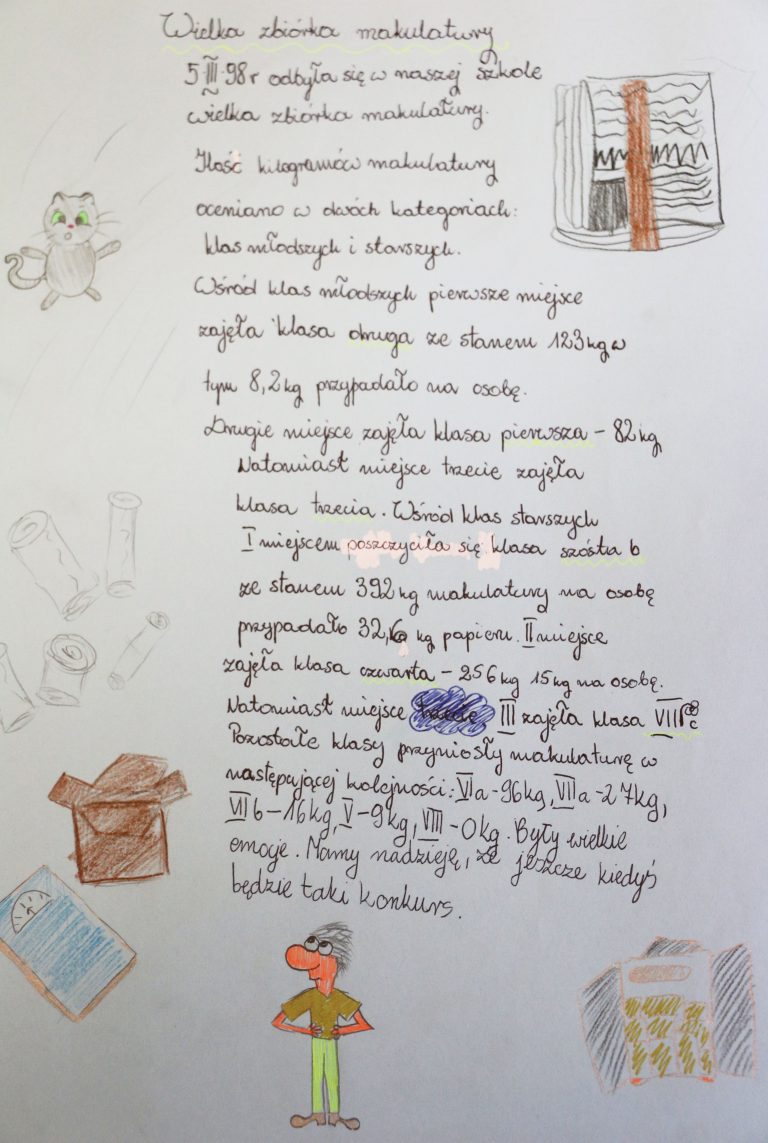 Wielka zbiórka makulatury
5 III 98r odbyła się w naszej szkole
wielka zbiórka makulatury.
Ilość kilogramów makulatury
oceniano w dwóch kategoriach:
klas młodszych i starszych.
Wśród klas młodszych pierwsze miejsce
zajęła klasa druga ze stanem 123 kg w
tym 8,2 kg przypadało na osobę.
Drugie miejsce zajęła klasa pierwsza - 82 kg
Natomiast miejsce trzecie zajęła
klasa trzecia. Wśród klas starszych
I miejscem poszczyciła się klasa szósta b
ze stanem 392 kg makulatury na osobę
przypadało 32,6 kg papieru. II miejsce
zajęła klasa czwarta - 256 kg 15 kg na osobę.
Natomiast miejsce III zajęła klasa VII c
Pozostałe klasy przyniosły makulaturę w
następującej kolejności: VI a - 96 kg, VII a - 27 kg,
VII b - 16 kg, V - 9 kg, VIII - 0 kg. Były wielkie
emocje. Mamy nadzieję, że jeszcze kiedyś
będzie taki konkurs.